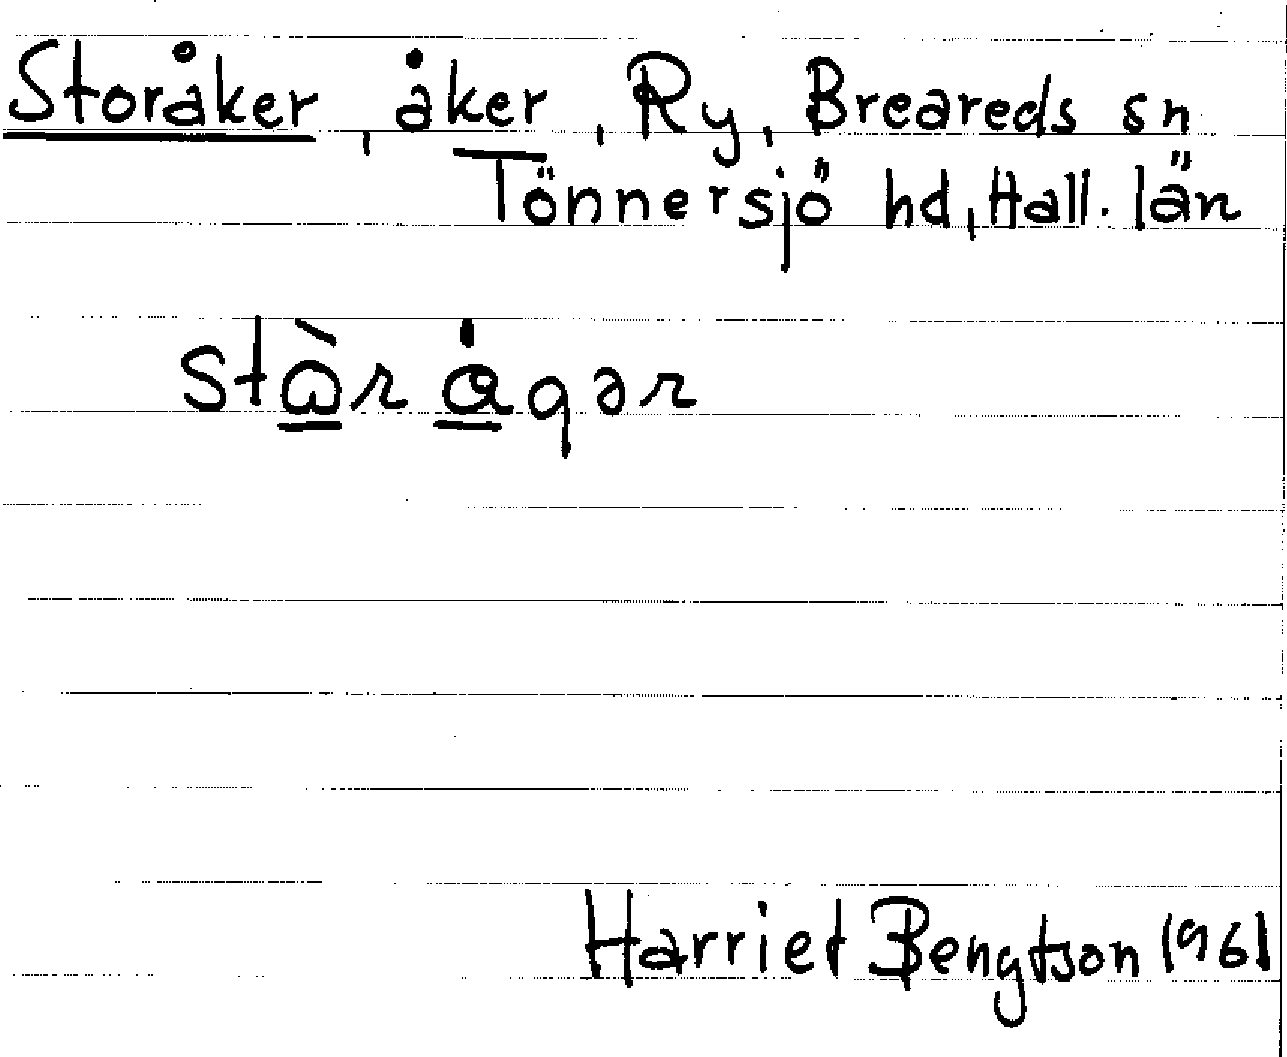 Storåker, åker, Ry, Breareds sn
Tönnersjö hd, Hall. län
stὼ̲r å̲gər
Harriet Bengtson 1961